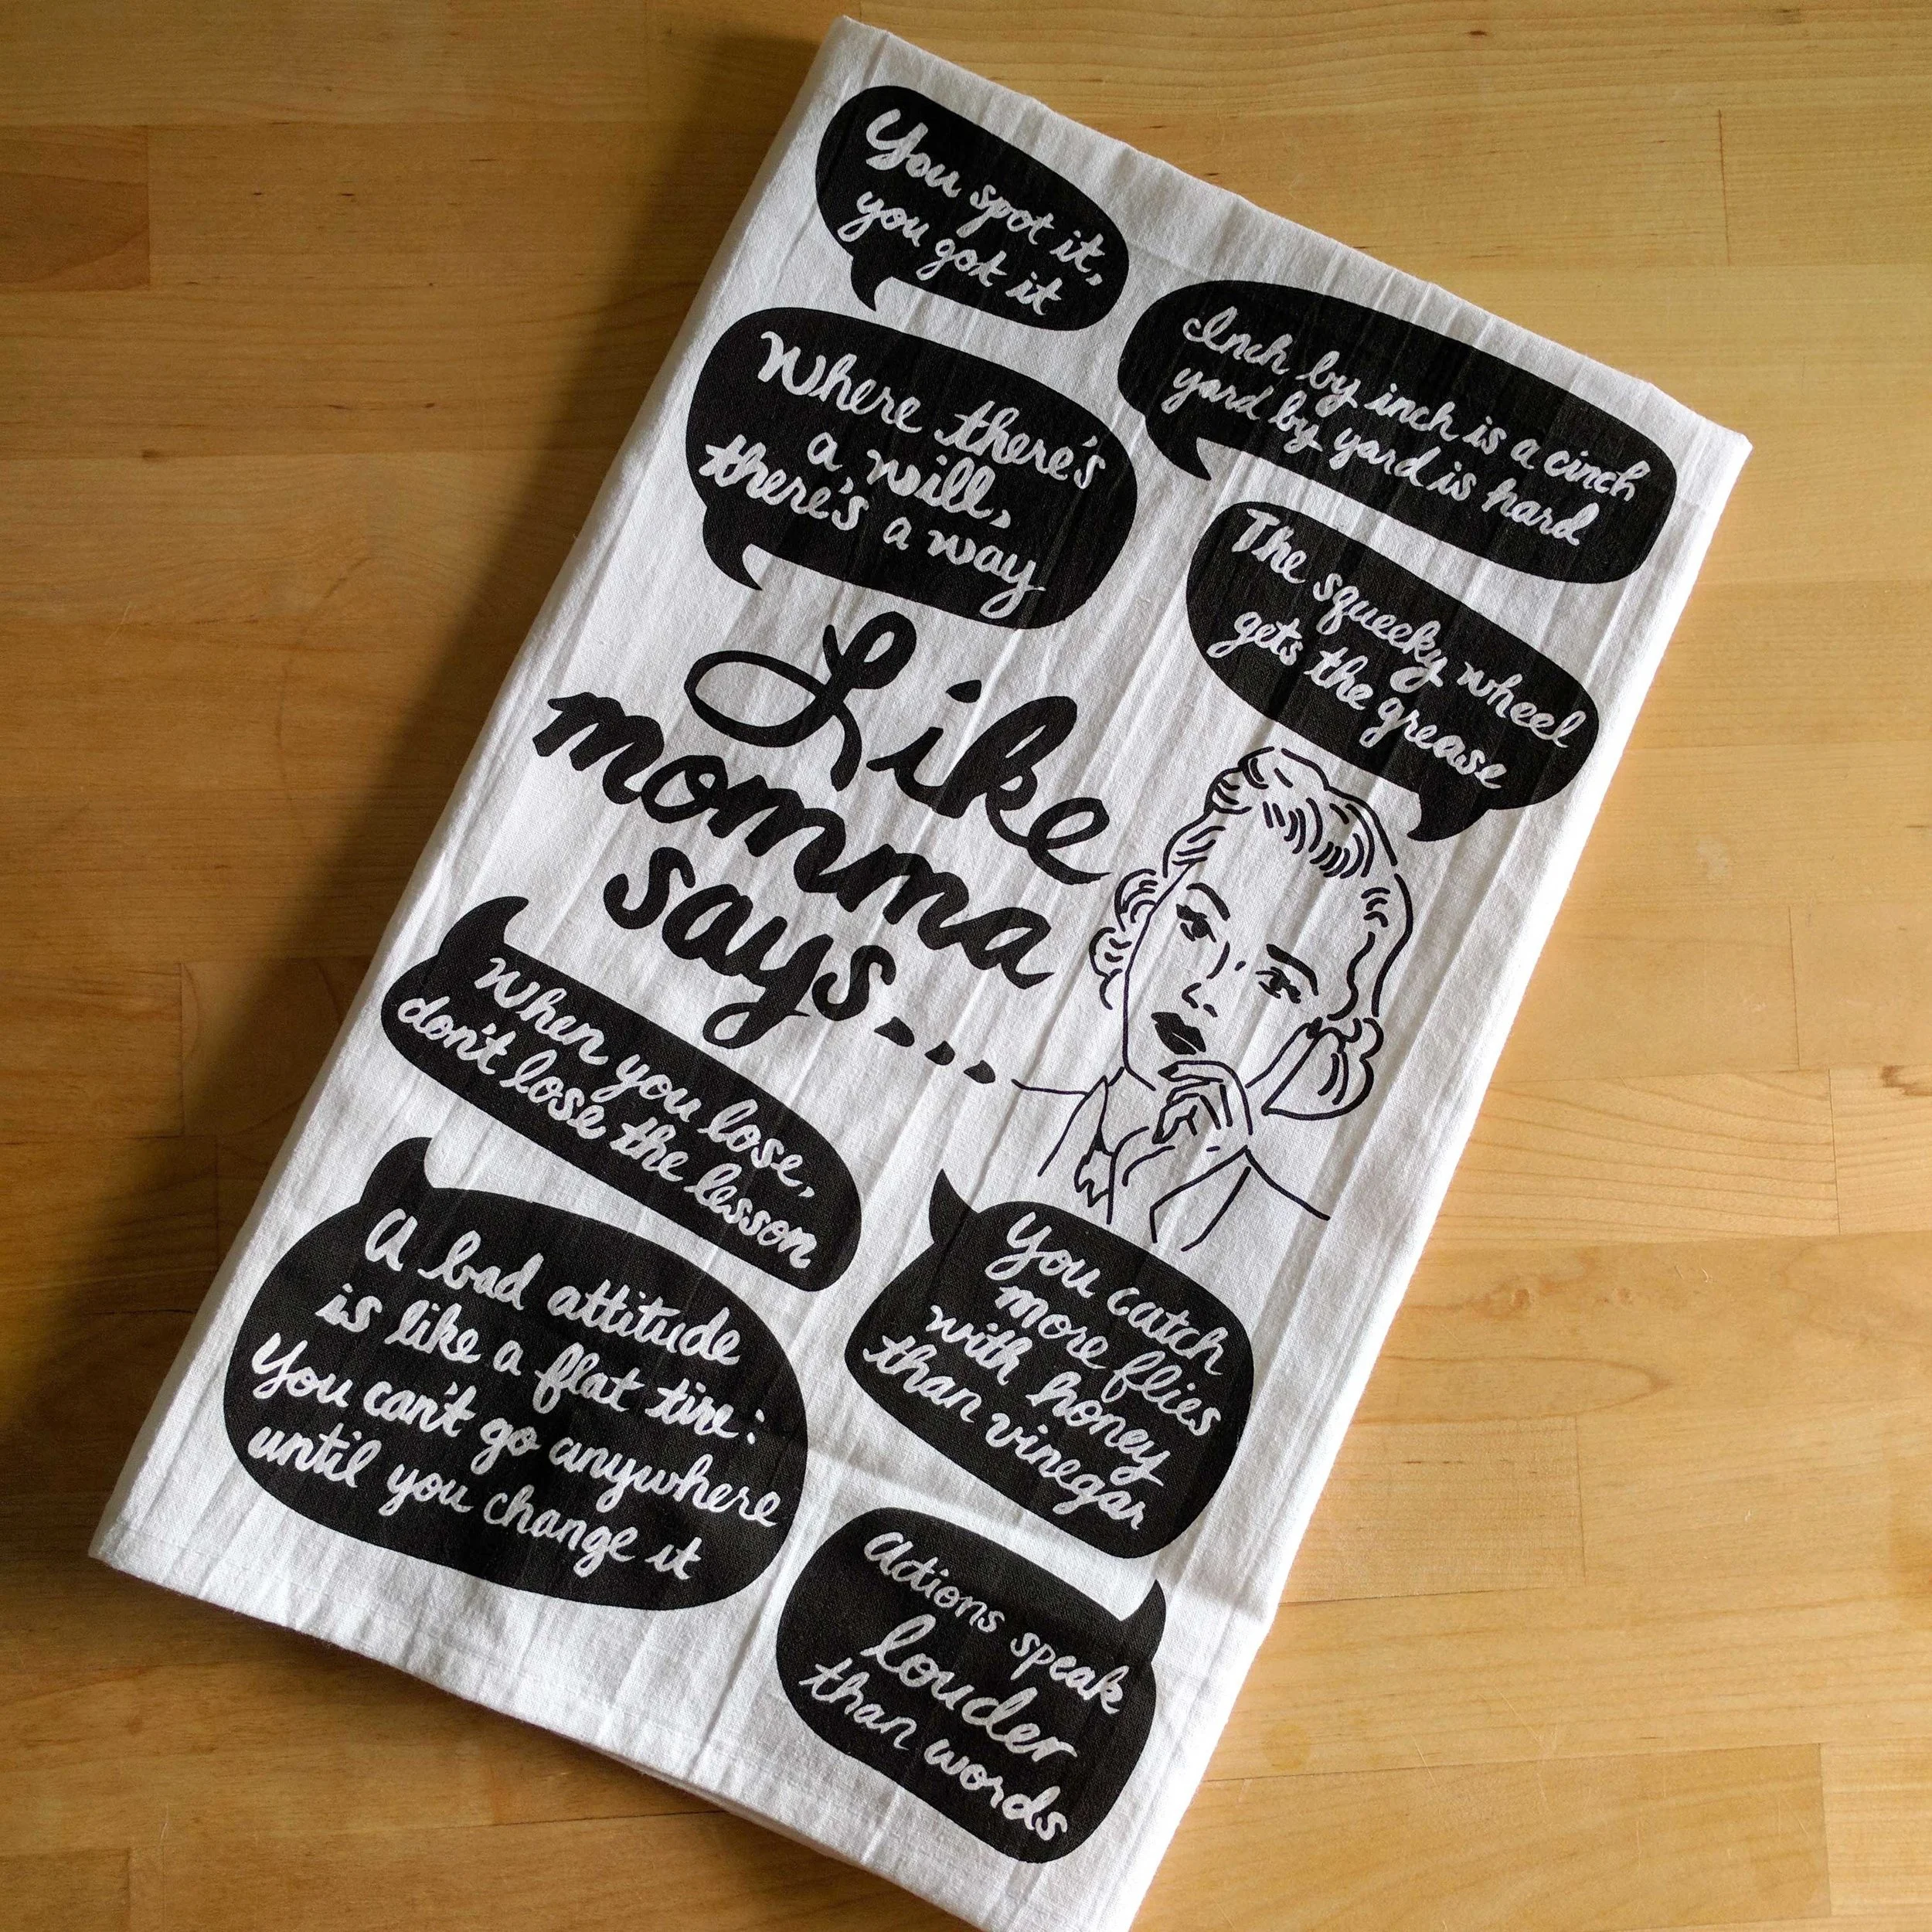 You spot it,
you got it
Inch by inch is a cinch
yard by yard is hard
Where there's
a will,
there's a way
The squeeky wheel
gets the grease
Like
momma
says...
When you lose,
don't lose the lesson
A bad attitude
is like a flat tire:
You can't go anywhere
until you change it
You catch
more flies
with honey
than vinegar
Actions speak
louder
than words